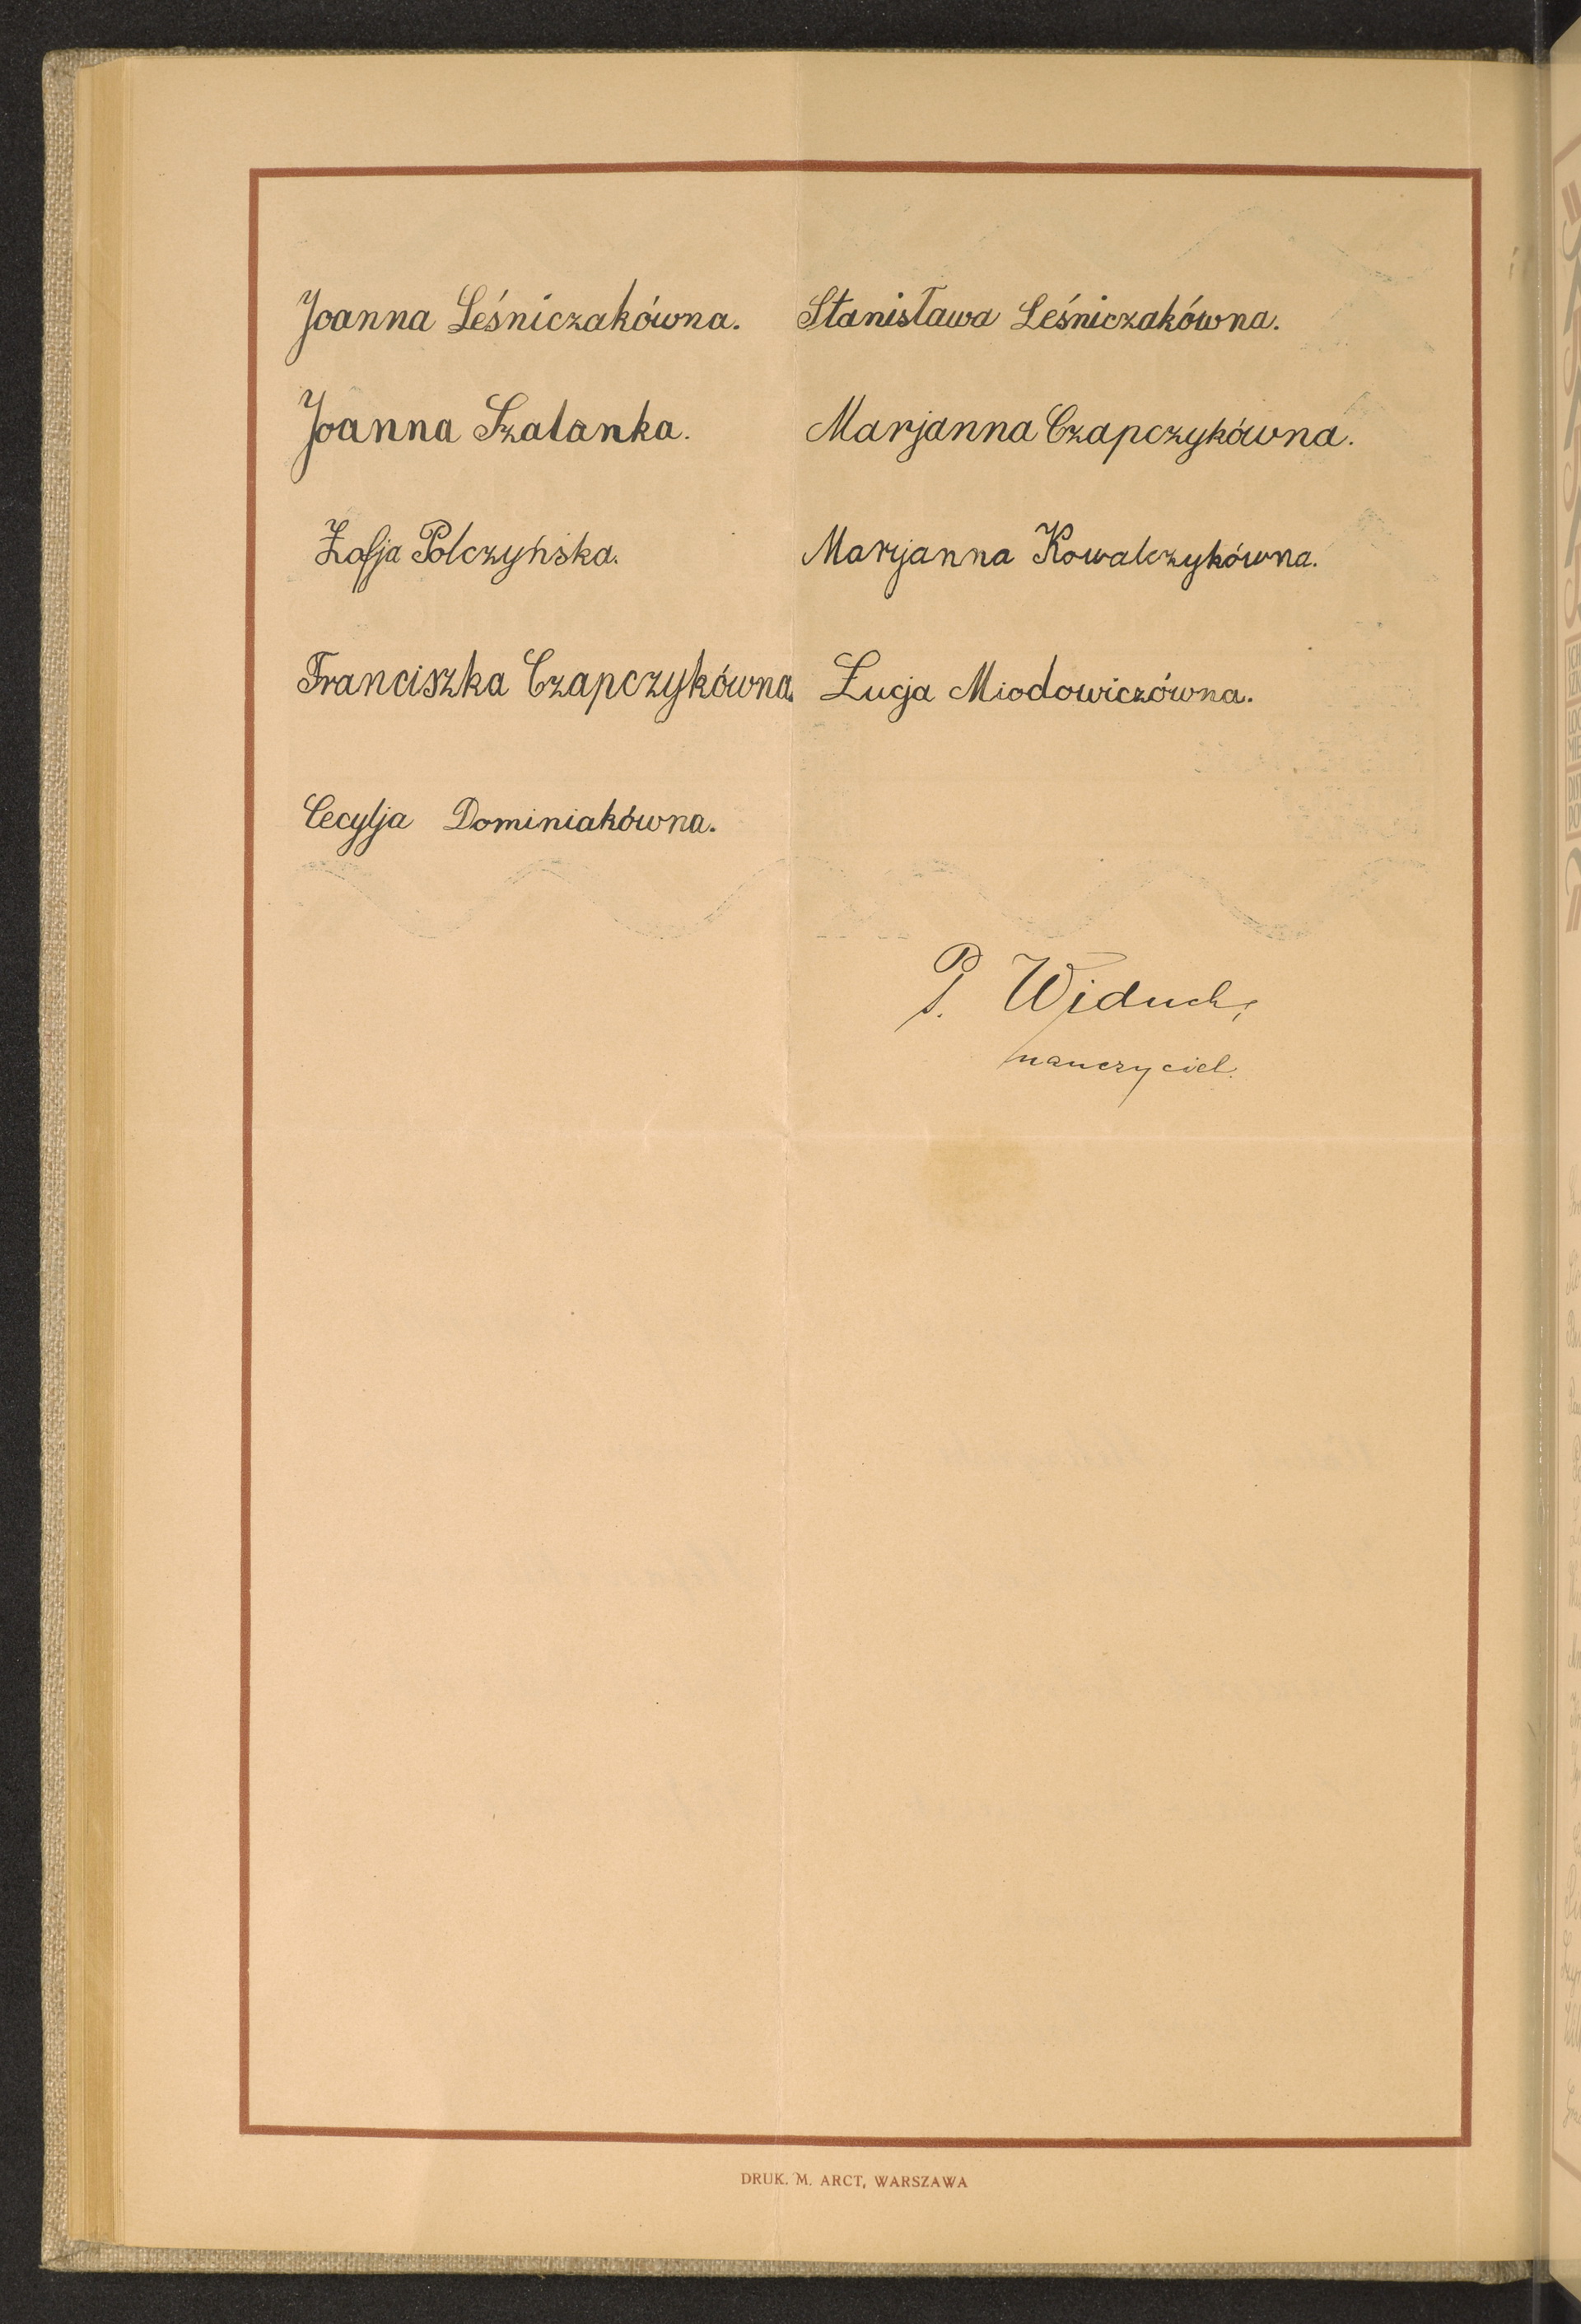 Joanna Leśniczakówna. Stanisława Leśniczakówna.
Joanna Szalanka. Marjanna Czapczykówna.
Zofja Polczyńska. Marjanna Kowalczykówna.
Franciszka Czapczykówna. Łucja Miodowiczówna.
Cecylja Dominiakówna.
P. Widuch,
nauczyciel.
DRUK. M. ARCT, WARSZAWA